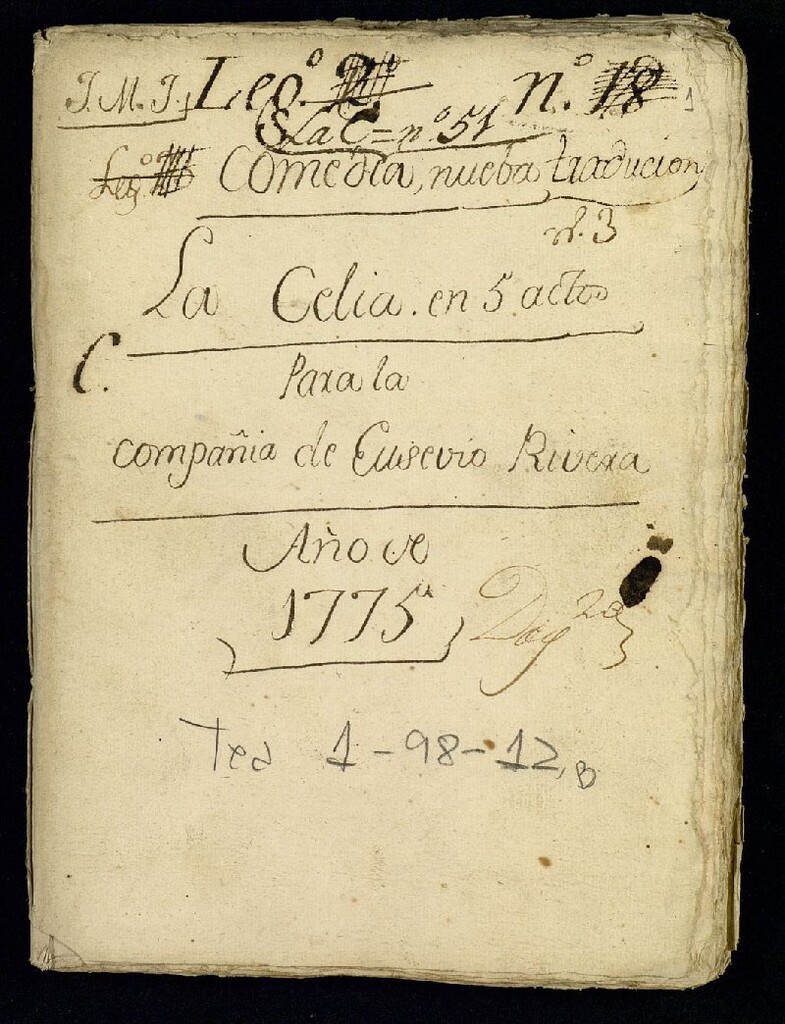 J. M. J. Leg.º 2. n.º 18 1
La C = n.º 51
Leg.º Comedia, nueba traducion
n.º 3
La Celia. en 5 actos
C.
Para la
compañia de Eusevio Rivera
Año de
1775
Tea 1-98-12, B